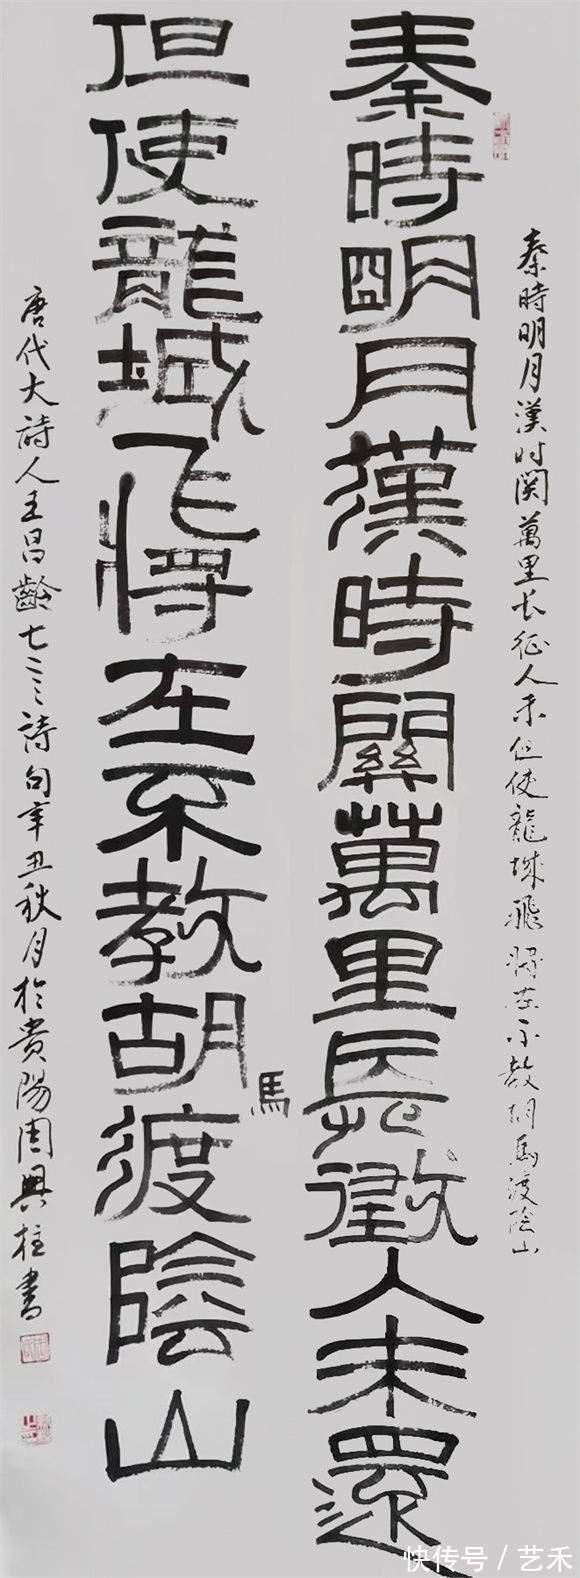 秦時明月漢时関萬里长征人未但使龍城飛將在不教胡馬渡陰山
秦時明月漢時關萬里長徵人未還
但使龍城飛將在不教胡馬渡陰山
唐代大詩人王昌齡七言詩句辛丑秋月於貴陽周興柱書
快传号 / 艺禾